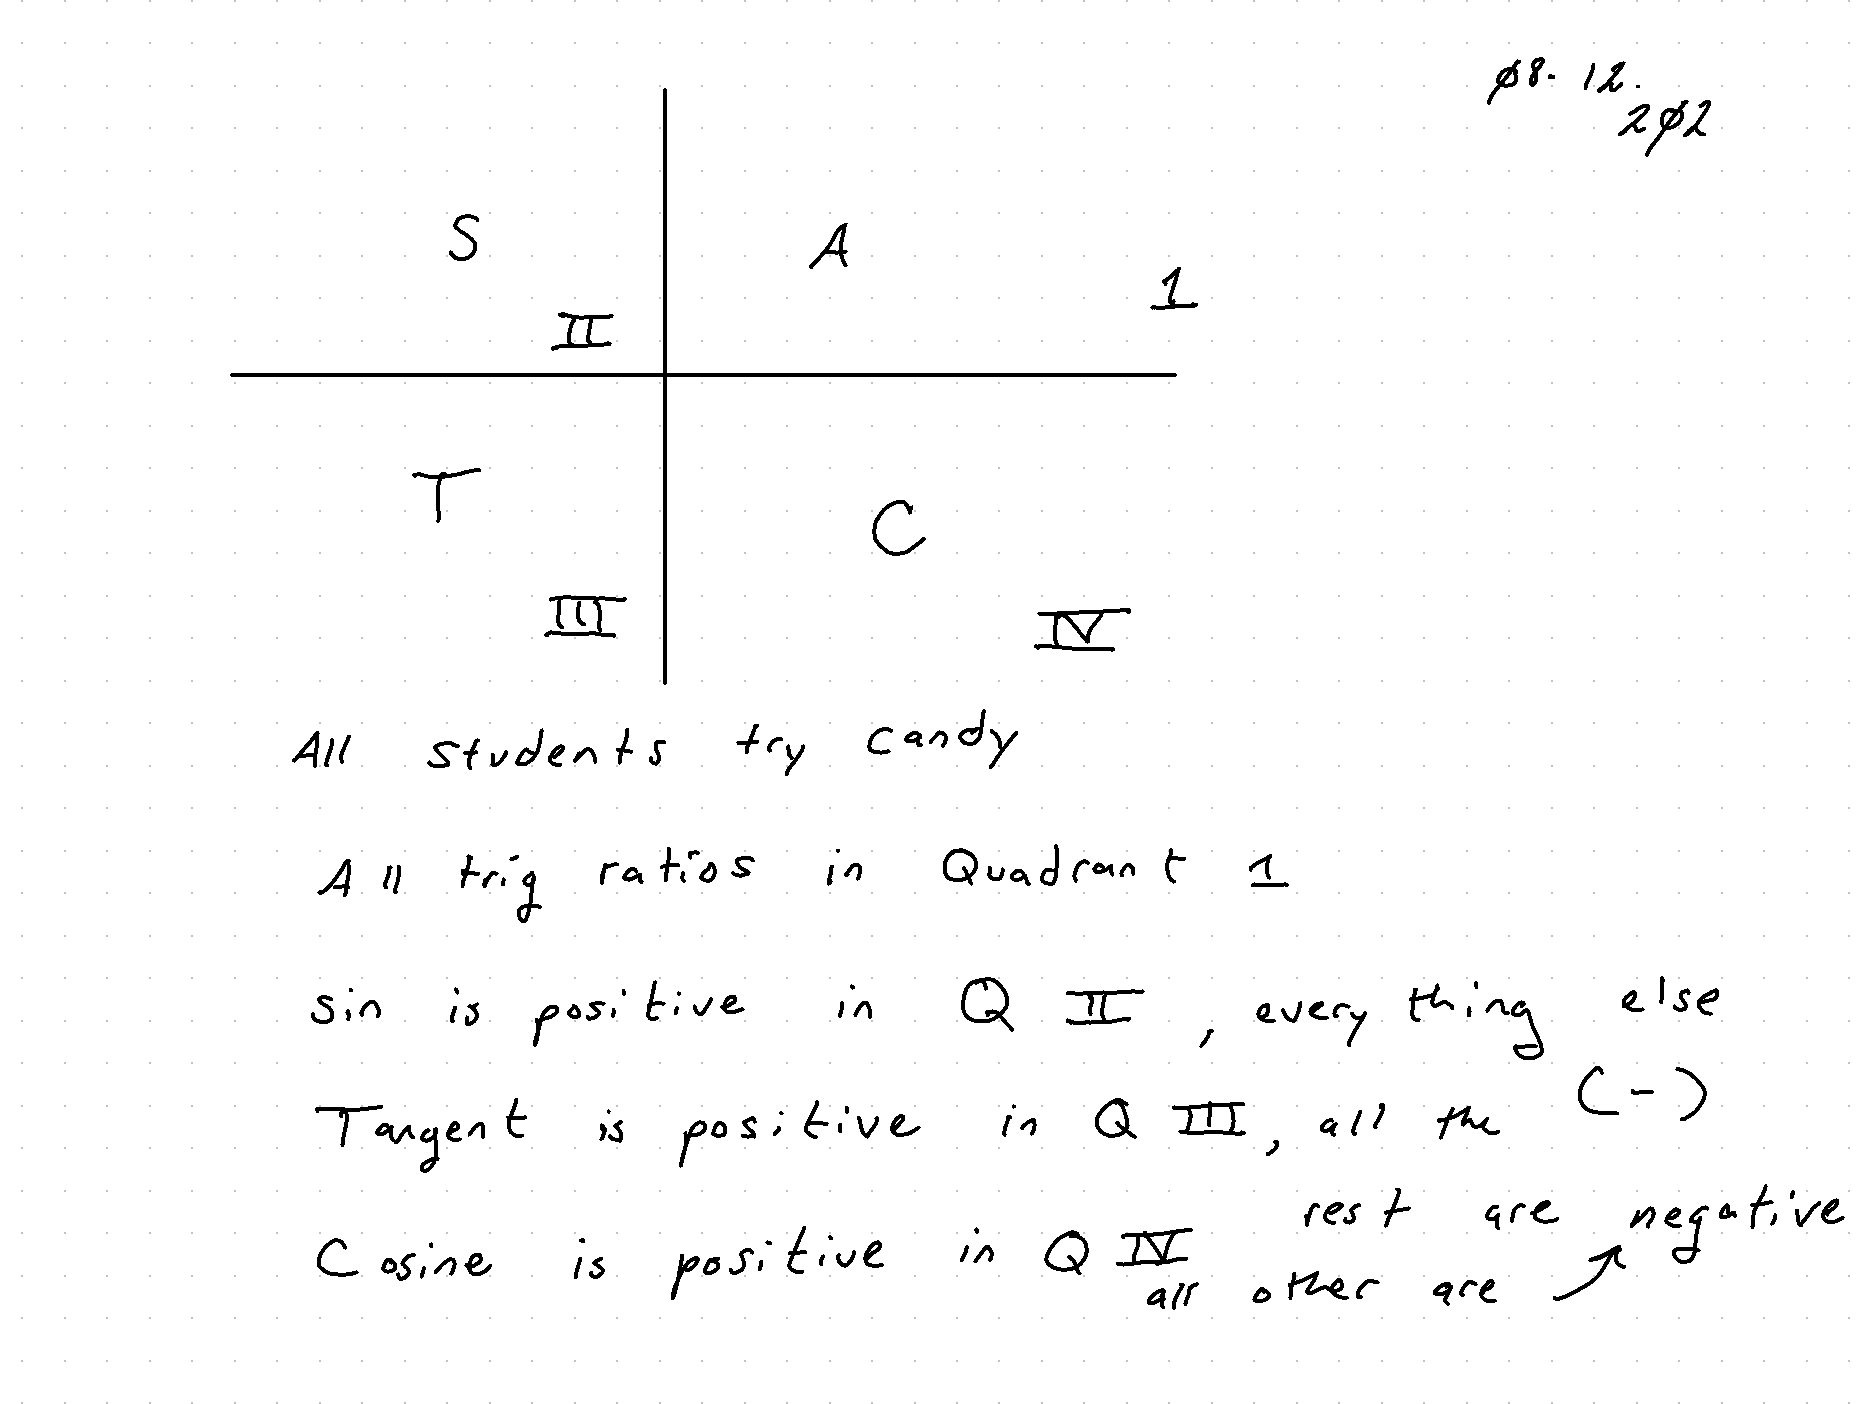 08. 12.
202
S A
1
II
T C
III IV
All students try candy
All trig ratios in Quadrant 1
sin is positive in Q II, everything else
(-)
Tangent is positive in Q III, all the
rest are negative
Cosine is positive in Q IV
all other are ↗